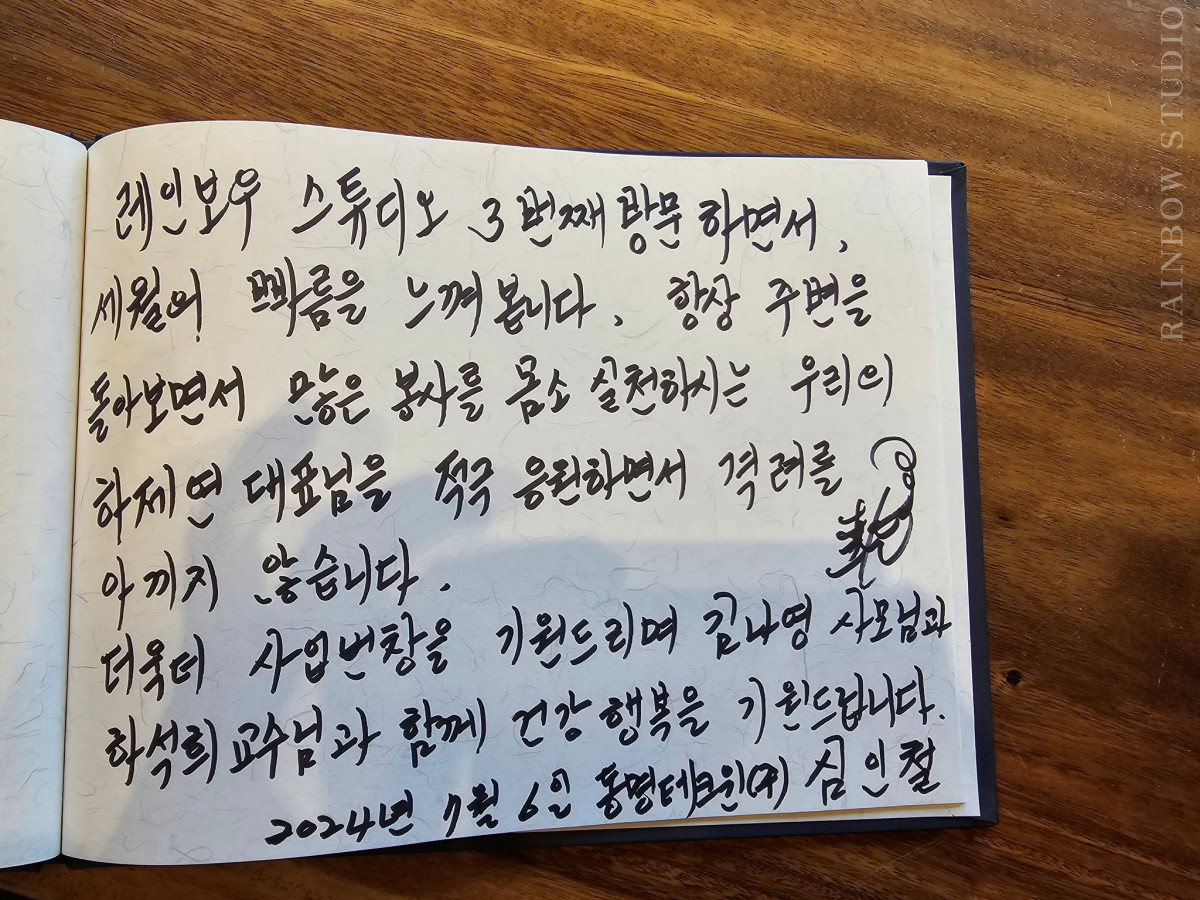 레인보우 스튜디오 3번째 방문하면서,
세월의 빡름을 느껴봅니다. 항상 주변을
돌아보면서 많은 봉사를 몸소 실천하시는 우리의
하제연 대표님을 적극 응원하면서 격려를
아끼지 않습니다.
더욱더 사업번창을 기원드리며 김나영 사모님과
하석희 교수님과 함께 건강행복을 기원드립니다.
2024년 7월 6일 동명테크윈(주) 심인철
RAINBOW STUDIO